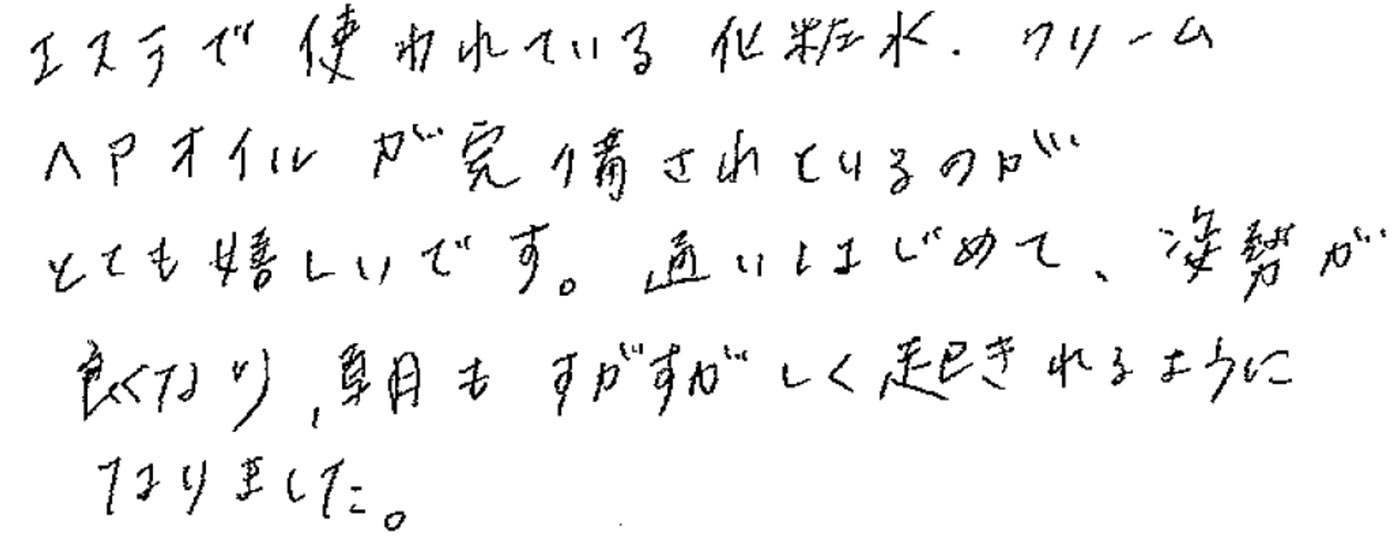 エステで使われている化粧水．クリーム
ヘアオイルが完備されているのが
とても嬉しいです。通いはじめて、姿勢が
良くなり,朝もすがすがしく起きれるように
なりました。